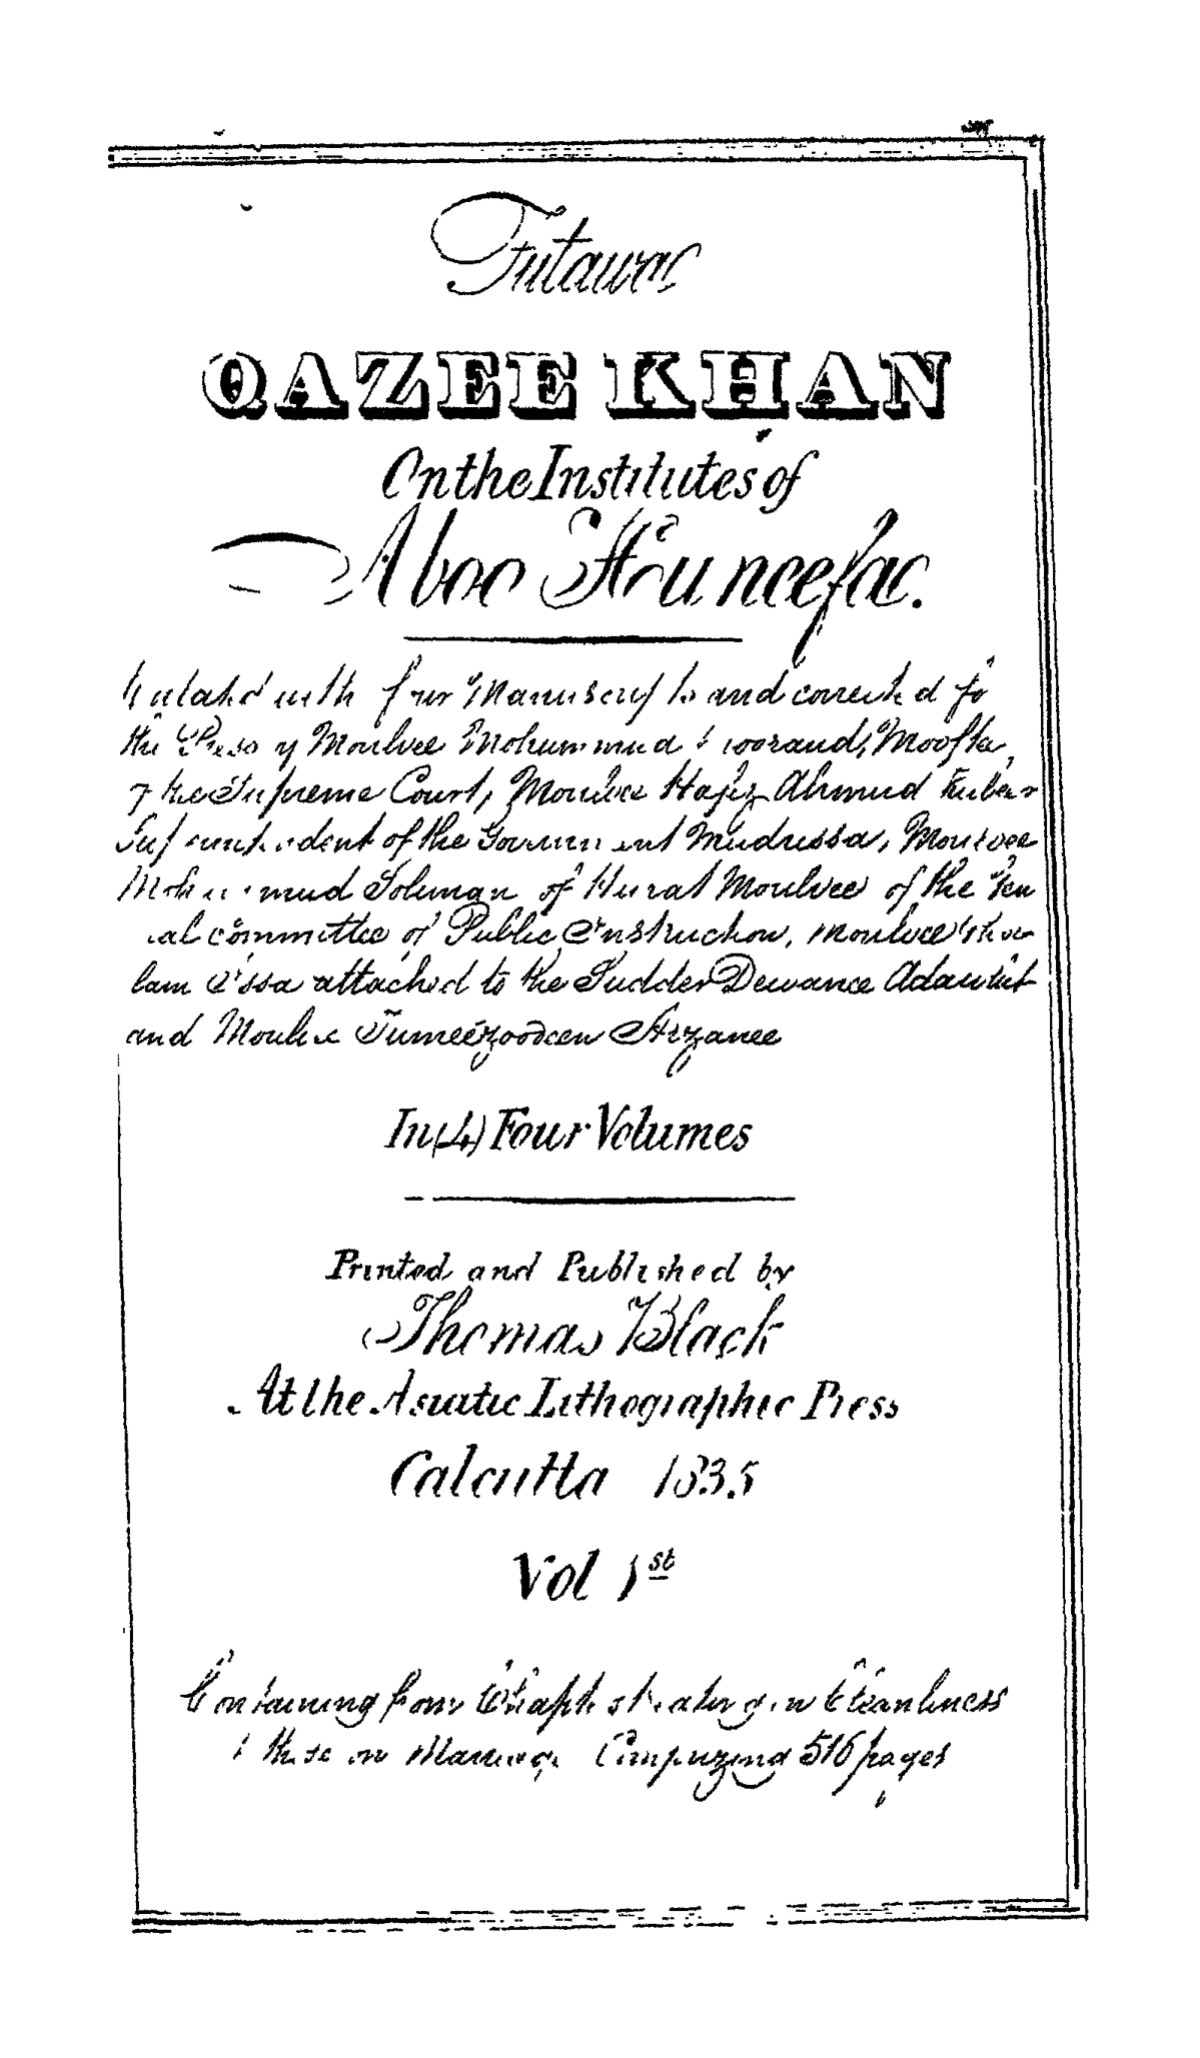 Futawae
QAZEE KHAN
On the Institutes of
Aboo Huneefae.
with four Manuscripts and corrected fo
the Press by Moulvee Mohummud Mooraud, Moofte,
of the Supreme Court, Moulvee Hafiz Ahmud Kubeer
Superintendent of the Government Mudrussa, Moulvee
Mohummud Soliman of Hurat Moulvee of the Gen
ral committee of Public Instruction, Moulvee
lam Issa attached to the Sudder Dewanee Adawlut
and Moulvee Tumeezooddeen Arzanee
In (4) Four Volumes
Printed and Published by
Thomas Black
At the Asiatic Lithographic Press
Calcutta 1835
Vol 1st
Containing from Chapters treating on Cleanliness
those on Marriage Comprizing 516 pages